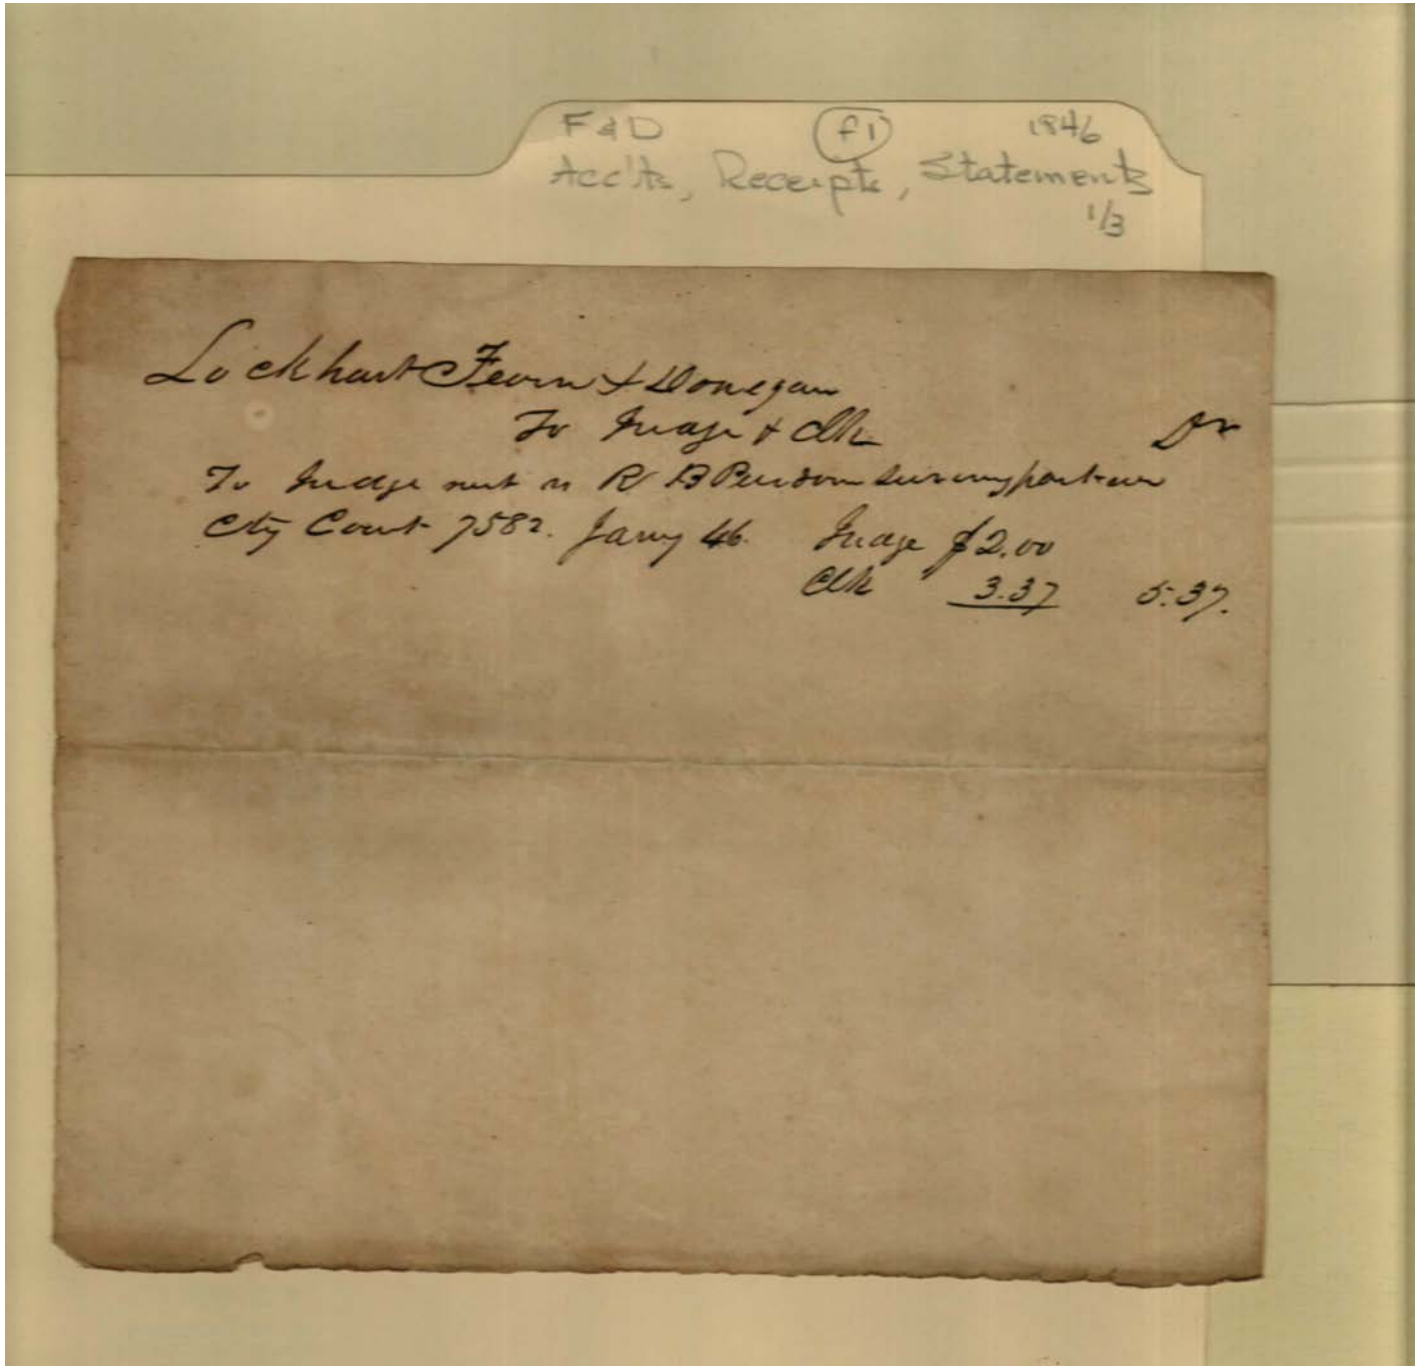 F & D (f1) 1846
Acc'ts, Receipts, Statements
1/3
Lockhart Fearn & Donegan
To Judge & Clk Dr
To Judge R B Purdom surviving partner
Cty Court 7582. Jany 46. Judge $2.00
Clk 3.37 5.37.